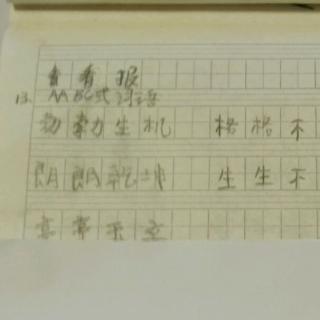 看看报
13. AABC式词语
勃勃生机 格格不
朗朗乾坤 生生不
亭亭玉立